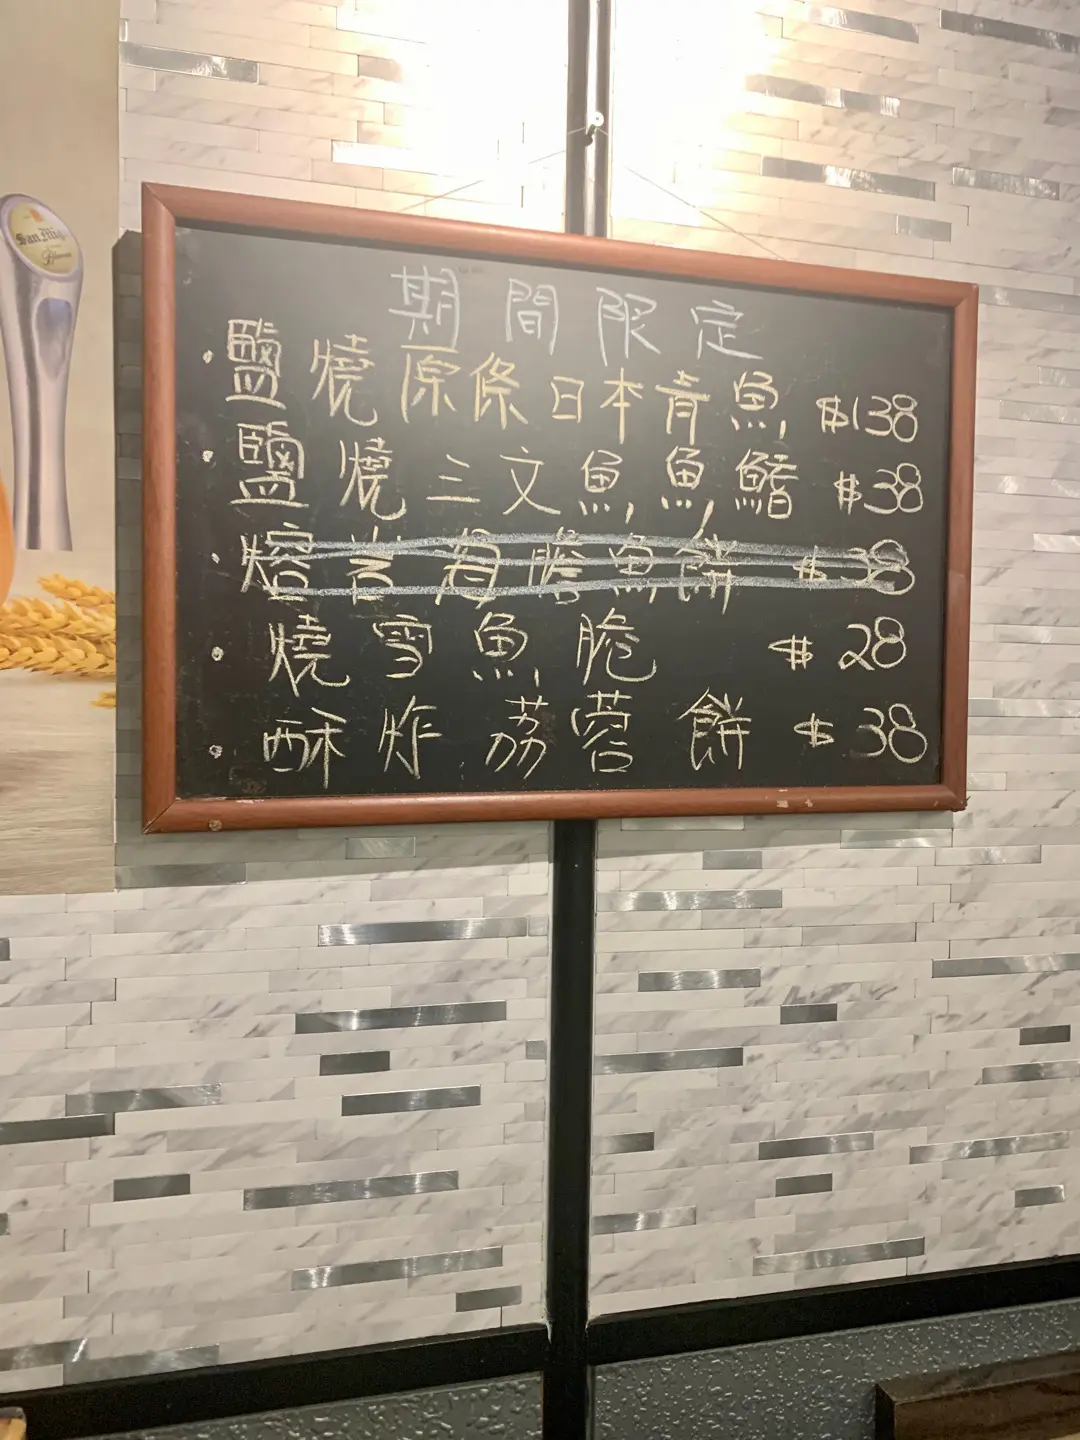 San Mig
期間限定
· 鹽燒原條日本青魚 $138
· 鹽燒三文魚魚鰭 $38
· 熔岩海膽魚餅 $38
· 燒雪魚脆 $28
· 酥炸荔蓉餅 $38